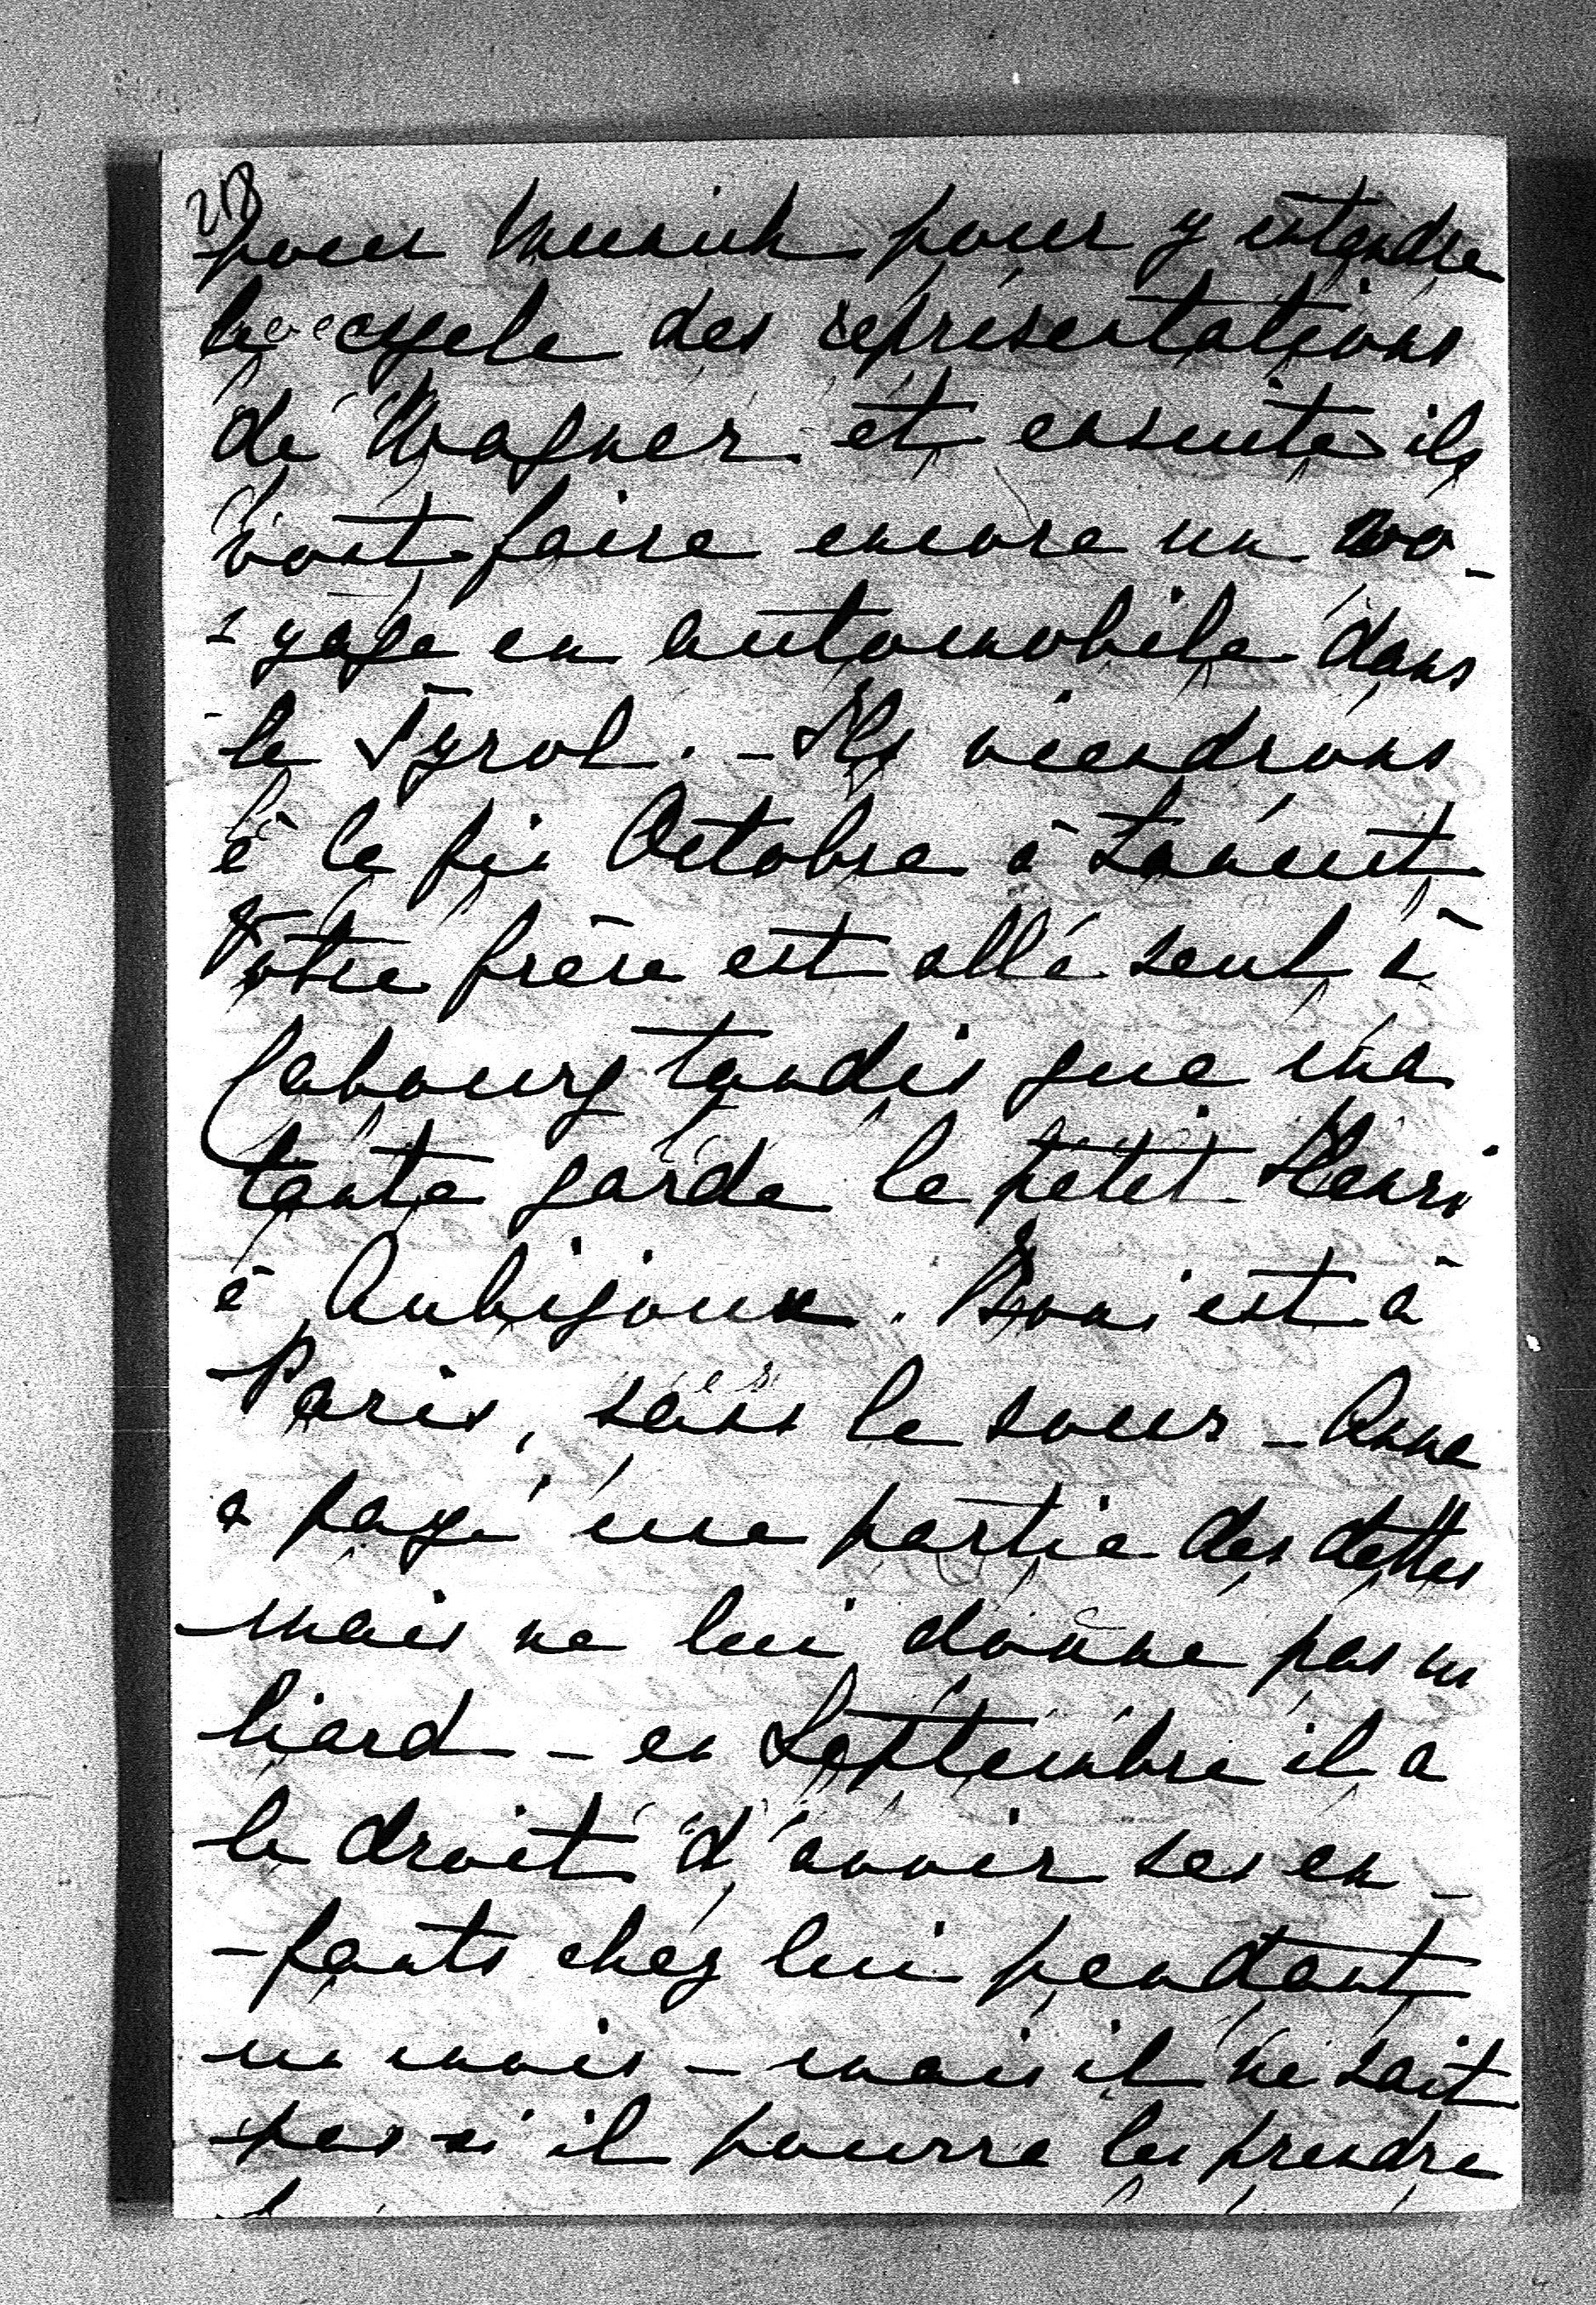 218
pour Munich pour y entendre
le cycle des représentations
de Wagner et ensuite ils
vont faire encore un vo-
-yage en automobile dans
le Tyrol. - Ils viendrons
à la fin Octobre à Lancut
Votre frère est allé seul à
Cabourg tandis que ma
tante garde le petit Henri
à Aubijoux. Boni est à
Paris, sans le sous - Anna
a payé une partie des dettes
mais ne lui donne pas un
liard - en Septembre il a
le droit d'avoir ses en-
-fants chez lui pendant
un mois - mais il ne sait
pas si il pourra les prendre